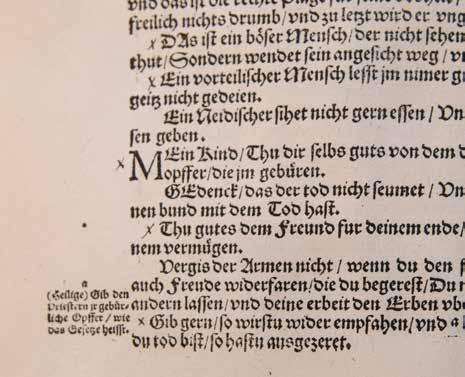 vnd das ist die rechte Plage
freilich nichts drumb/vnd zu letzt wird er vng
x DAs ist ein böser Mensch/der nicht sehen
thut/Sondern wendet sein angesicht weg/v
x Ein vorteilischer Mensch lesst jm nimer g
geitz nicht gedeien.
Ein Neidischer sihet nicht gern essen/Vn
sen geben.
x MEin Kind/Thu dir selbs guts von dem d
opffer/die jm gebüren.
GEdenck/das der tod nicht seumet/Vn
nen bund mit dem Tod hast.
x Thu gutes dem Freund für deinem ende/
nem vermügen.
Vergis der Armen nicht/wenn du den f
auch Freude widerfaren/die du begerest/Du m
andern lassen/vnd deine erbeit den Erben vbe
x Gib gern/so wirstu wider empfahen/vnd a
du tod bist/so hastu ausgezeret.
a
(Heilige) Gib den
Priestern jr gebür-
liche Opffer/wie
das Gesetze heisst.